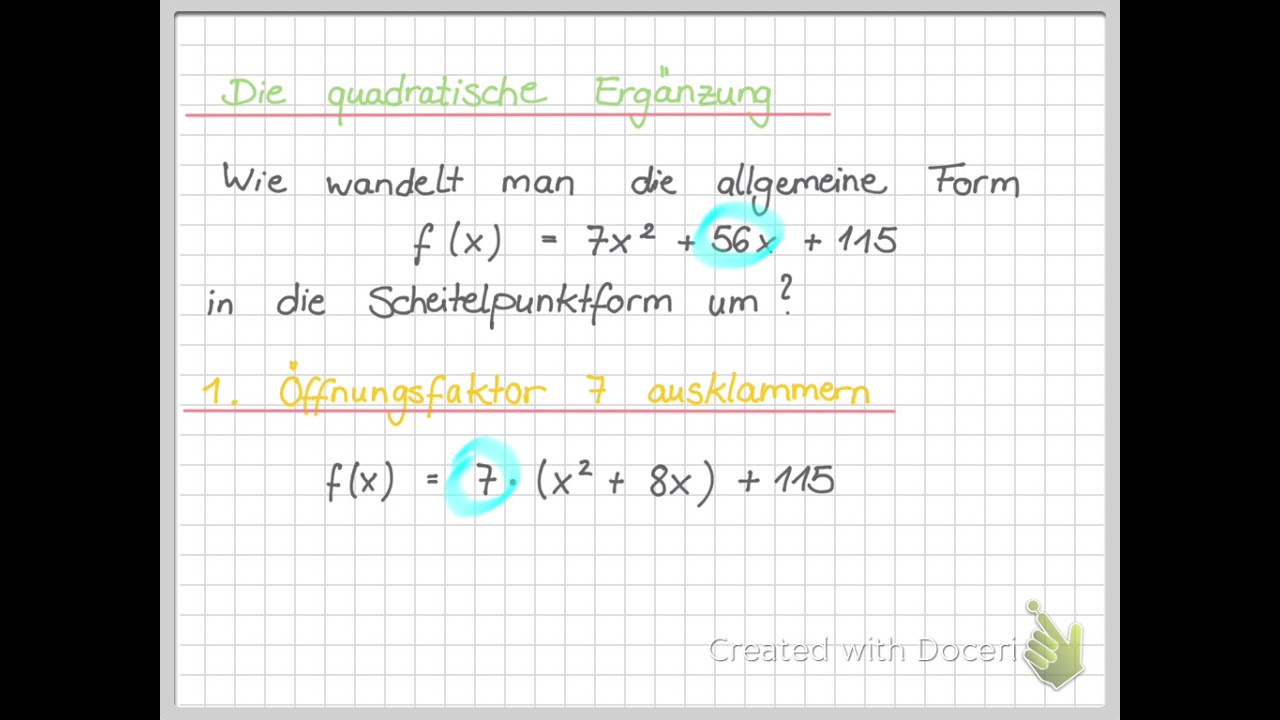 Die quadratische Ergänzung
Wie wandelt man die allgemeine Form
f(x) = 7x² + 56x + 115
in die Scheitelpunktform um?
1. Öffnungsfaktor 7 ausklammern
f(x) = 7 · (x² + 8x) + 115
Created with Doceri